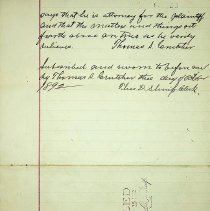 says that he is attorney for the plaintiff
and that the matters and things set
forth above are true as he verily
believes. Thomas S. Crutcher
Subscribed and sworn to before me
by Thomas S Crutcher this day of
1892
Clerk